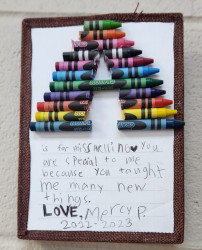 is for miss aelli no♥ you
are speaial to me
because you taught
me many new
things.
LOVE, Mercy P.
2022-2023